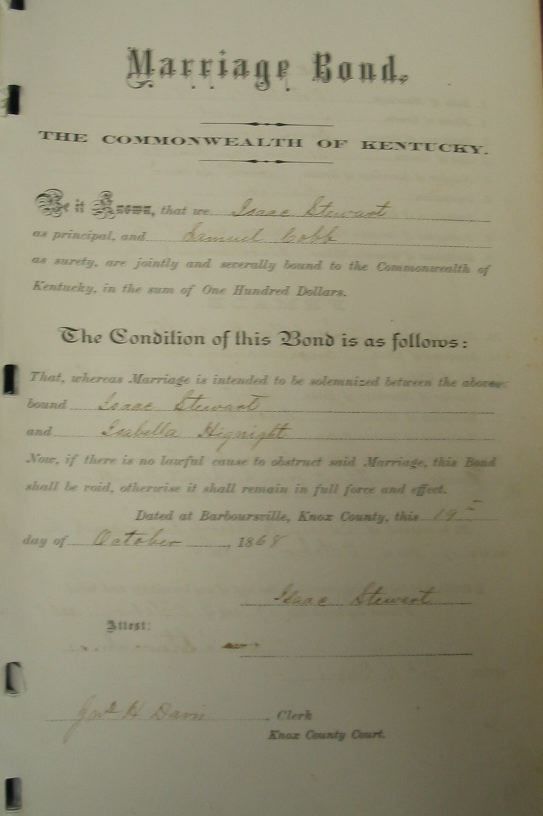 Marriage Bond,
THE COMMONWEALTH OF KENTUCKY.
Be it Known, that we Isaac Stewart
as principal, and Samuel Cobb
as surety, are jointly and severally bound to the Commonwealth of
Kentucky, in the sum of One Hundred Dollars.
The Condition of this Bond is as follows:
That, whereas Marriage is intended to be solemnized between the above
bound Isaac Stewart
and Isabella Hignight
Now, if there is no lawful cause to obstruct said Marriage, this Bond
shall be void, otherwise it shall remain in full force and effect.
Dated at Barboursville, Knox County, this 19
day of October, 1868
Isaac Stewart
Attest:
H Davis, Clerk
Knox County Court.